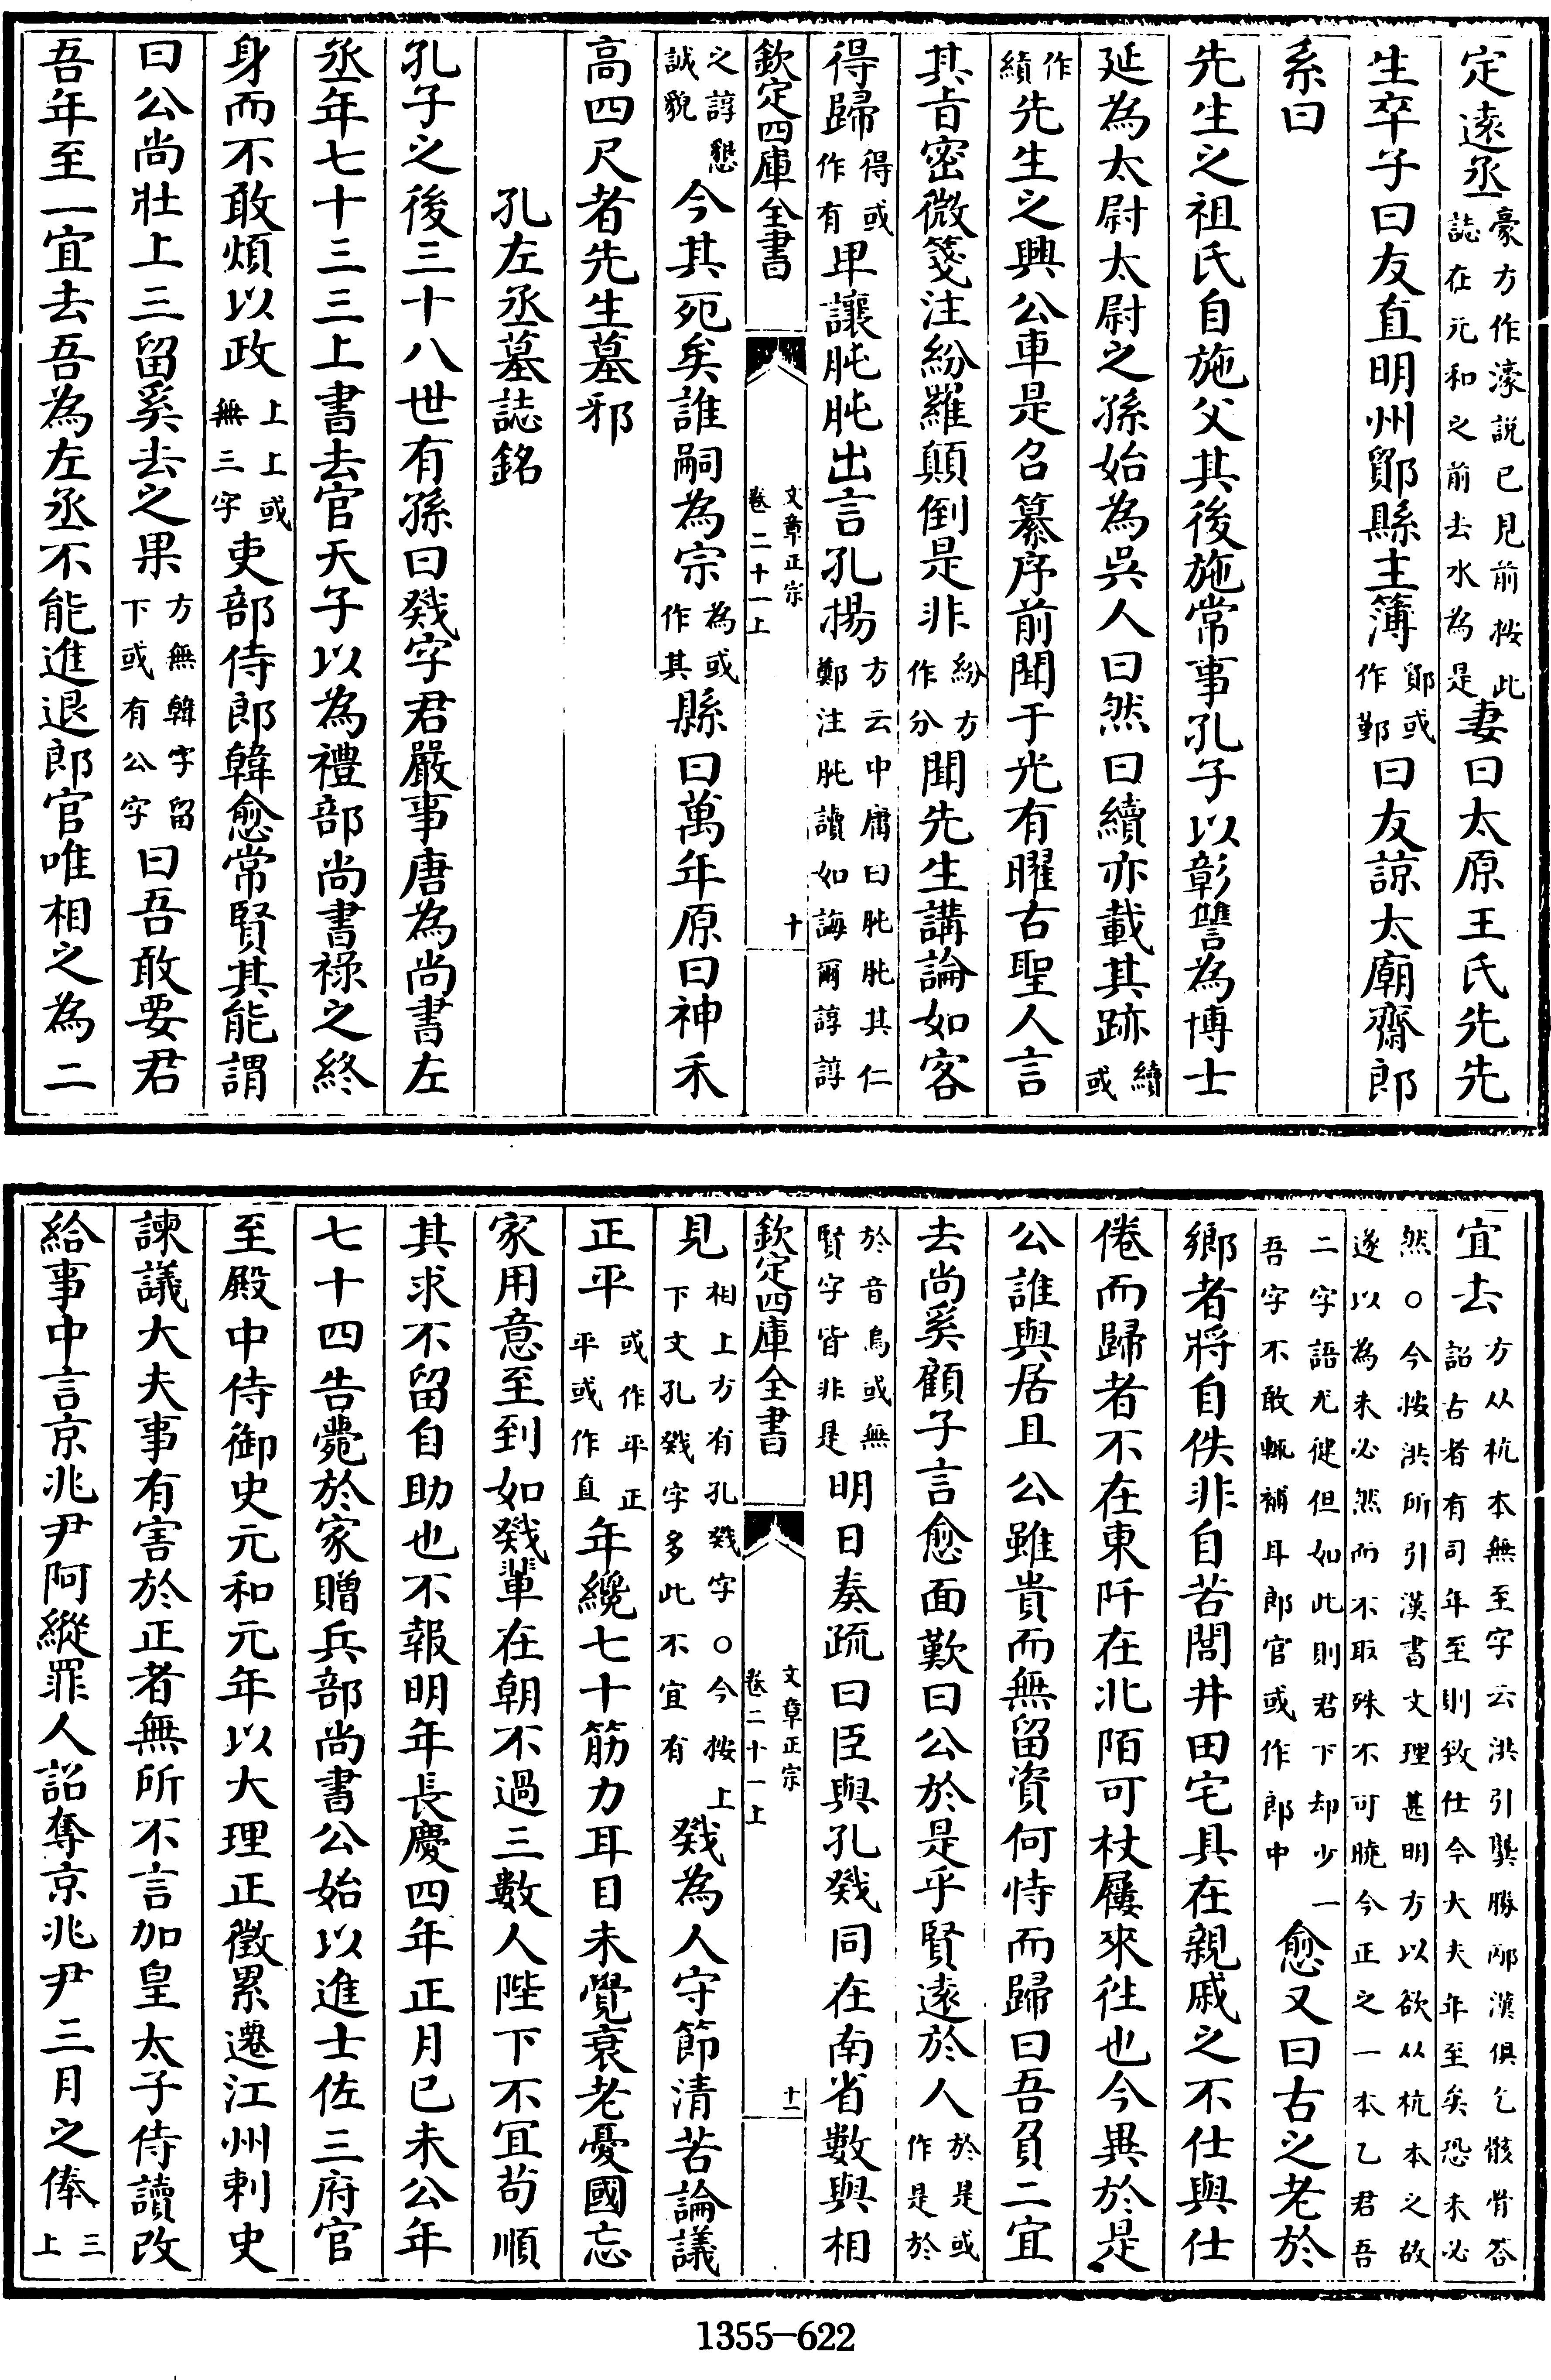 定遠丞豪方作濠説已見前按此誌在元和之前去水為是妻曰太原王氏先先
生卒子曰友直明州鄮縣主簿鄮或作鄞曰友諒太廟齋郎
系曰
先生之祖氏自施父其後施常事孔子以彰讐為博士
延為太尉太尉之孫始為吳人曰然曰續亦載其跡續或
作績先生之興公車是召纂序前聞于光有曜古聖人言
其旨密微箋注紛羅顛倒是非紛方作分聞先生講論如客
得歸得或作有卑讓肫肫出言孔揚方云中庸曰肫肫其仁鄭注肫讀如誨爾諄諄
欽定四庫全書 文章正宗卷二十一上 十
之諄懇誠貌今其死矣誰嗣為宗為或作其縣曰萬年原曰神禾
高四尺者先生墓邪
孔左丞墓誌銘
孔子之後三十八世有孫曰戣字君嚴事唐為尚書左
丞年七十三三上書去官天子以為禮部尚書祿之終
身而不敢煩以政上上或無三字吏部侍郎韓愈常賢其能謂
曰公尚壯上三留奚去之果方無韓字留下或有公字曰吾敢要君
吾年至一宜去吾為左丞不能進退郎官唯相之為二
宜去方从杭本無至字云洪引龔勝邴漢俱乞骸骨答詔古者有司年至則致仕今大夫年至矣恐未必
然○今按洪所引漢書文理甚明方以欲从杭本之故遂以為未必然而不取殊不可曉今正之一本乙君吾
二字語尤健但如此則君下却少一吾字不敢輒補耳郎官或作郎中愈又曰古之老於
鄉者將自佚非自苦閭井田宅具在親戚之不仕與仕
倦而歸者不在東阡在北陌可杖屨來往也今異於是
公誰與居且公雖貴而無留資何恃而歸曰吾負二宜
去尚奚顧子言愈面歎曰公於是乎賢遠於人於是或作是於
於音烏或無賢字皆非是明日奏疏曰臣與孔戣同在南省數與相
欽定四庫全書 文章正宗卷二十一上 十一
見相上方有孔戣字○今按上下文孔戣字多此不宜有戣為人守節清苦論議
正平或作平正平或作直年纔七十筋力耳目未覺衰老憂國忘
家用意至到如戣輩在朝不過三數人陛下不宜苟順
其求不留自助也不報明年長慶四年正月己未公年
七十四告薨於家贈兵部尚書公始以進士佐三府官
至殿中侍御史元和元年以大理正徵累遷江州刺史
諫議大夫事有害於正者無所不言加皇太子侍讀改
給事中言京兆尹阿縱罪人詔奪京兆尹三月之俸三上
1355—622